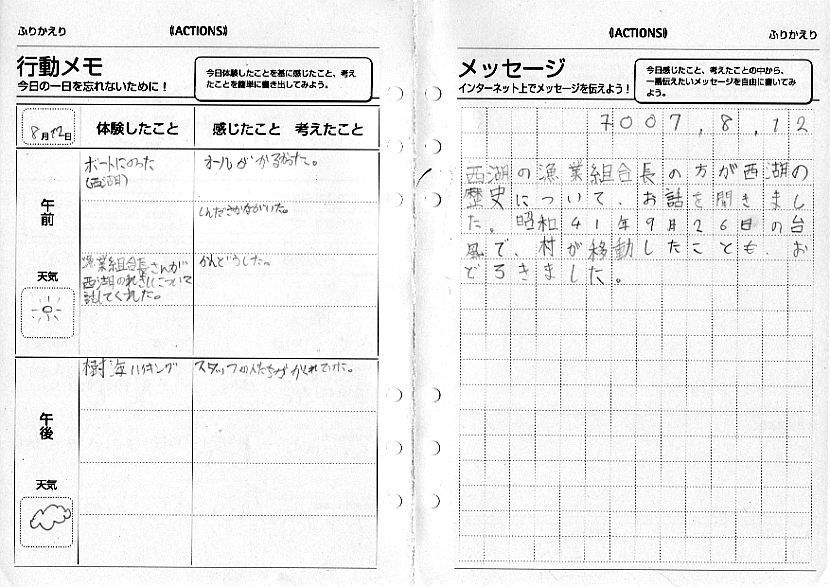 ふりかえり
《ACTIONS》
行動メモ
今日の一日を忘れないために！
今日体験したことを基に感じたこと、考え
たことを簡単に書き出してみよう。
8月12日
体験したこと
感じたこと 考えたこと
午前
天気
ボートにのった
(西湖)
オールがかるかった。
しんださかながいた。
漁業組合長さんが
西湖のれきしについて
話してくれた。
かんどうした。
午後
天気
樹海ハイキング
スタッフの人たちがかくれていた。
《ACTIONS》
ふりかえり
メッセージ
インターネット上でメッセージを伝えよう！
今日感じたこと、考えたことの中から、
一番伝えたいメッセージを自由に書いてみ
よう。
7007,8,12
西湖の漁業組合長の方が西湖の
歴史について、お話を聞きまし
た。昭和41年9月26日の台
風で、村が移動したことも、お
どろきました。